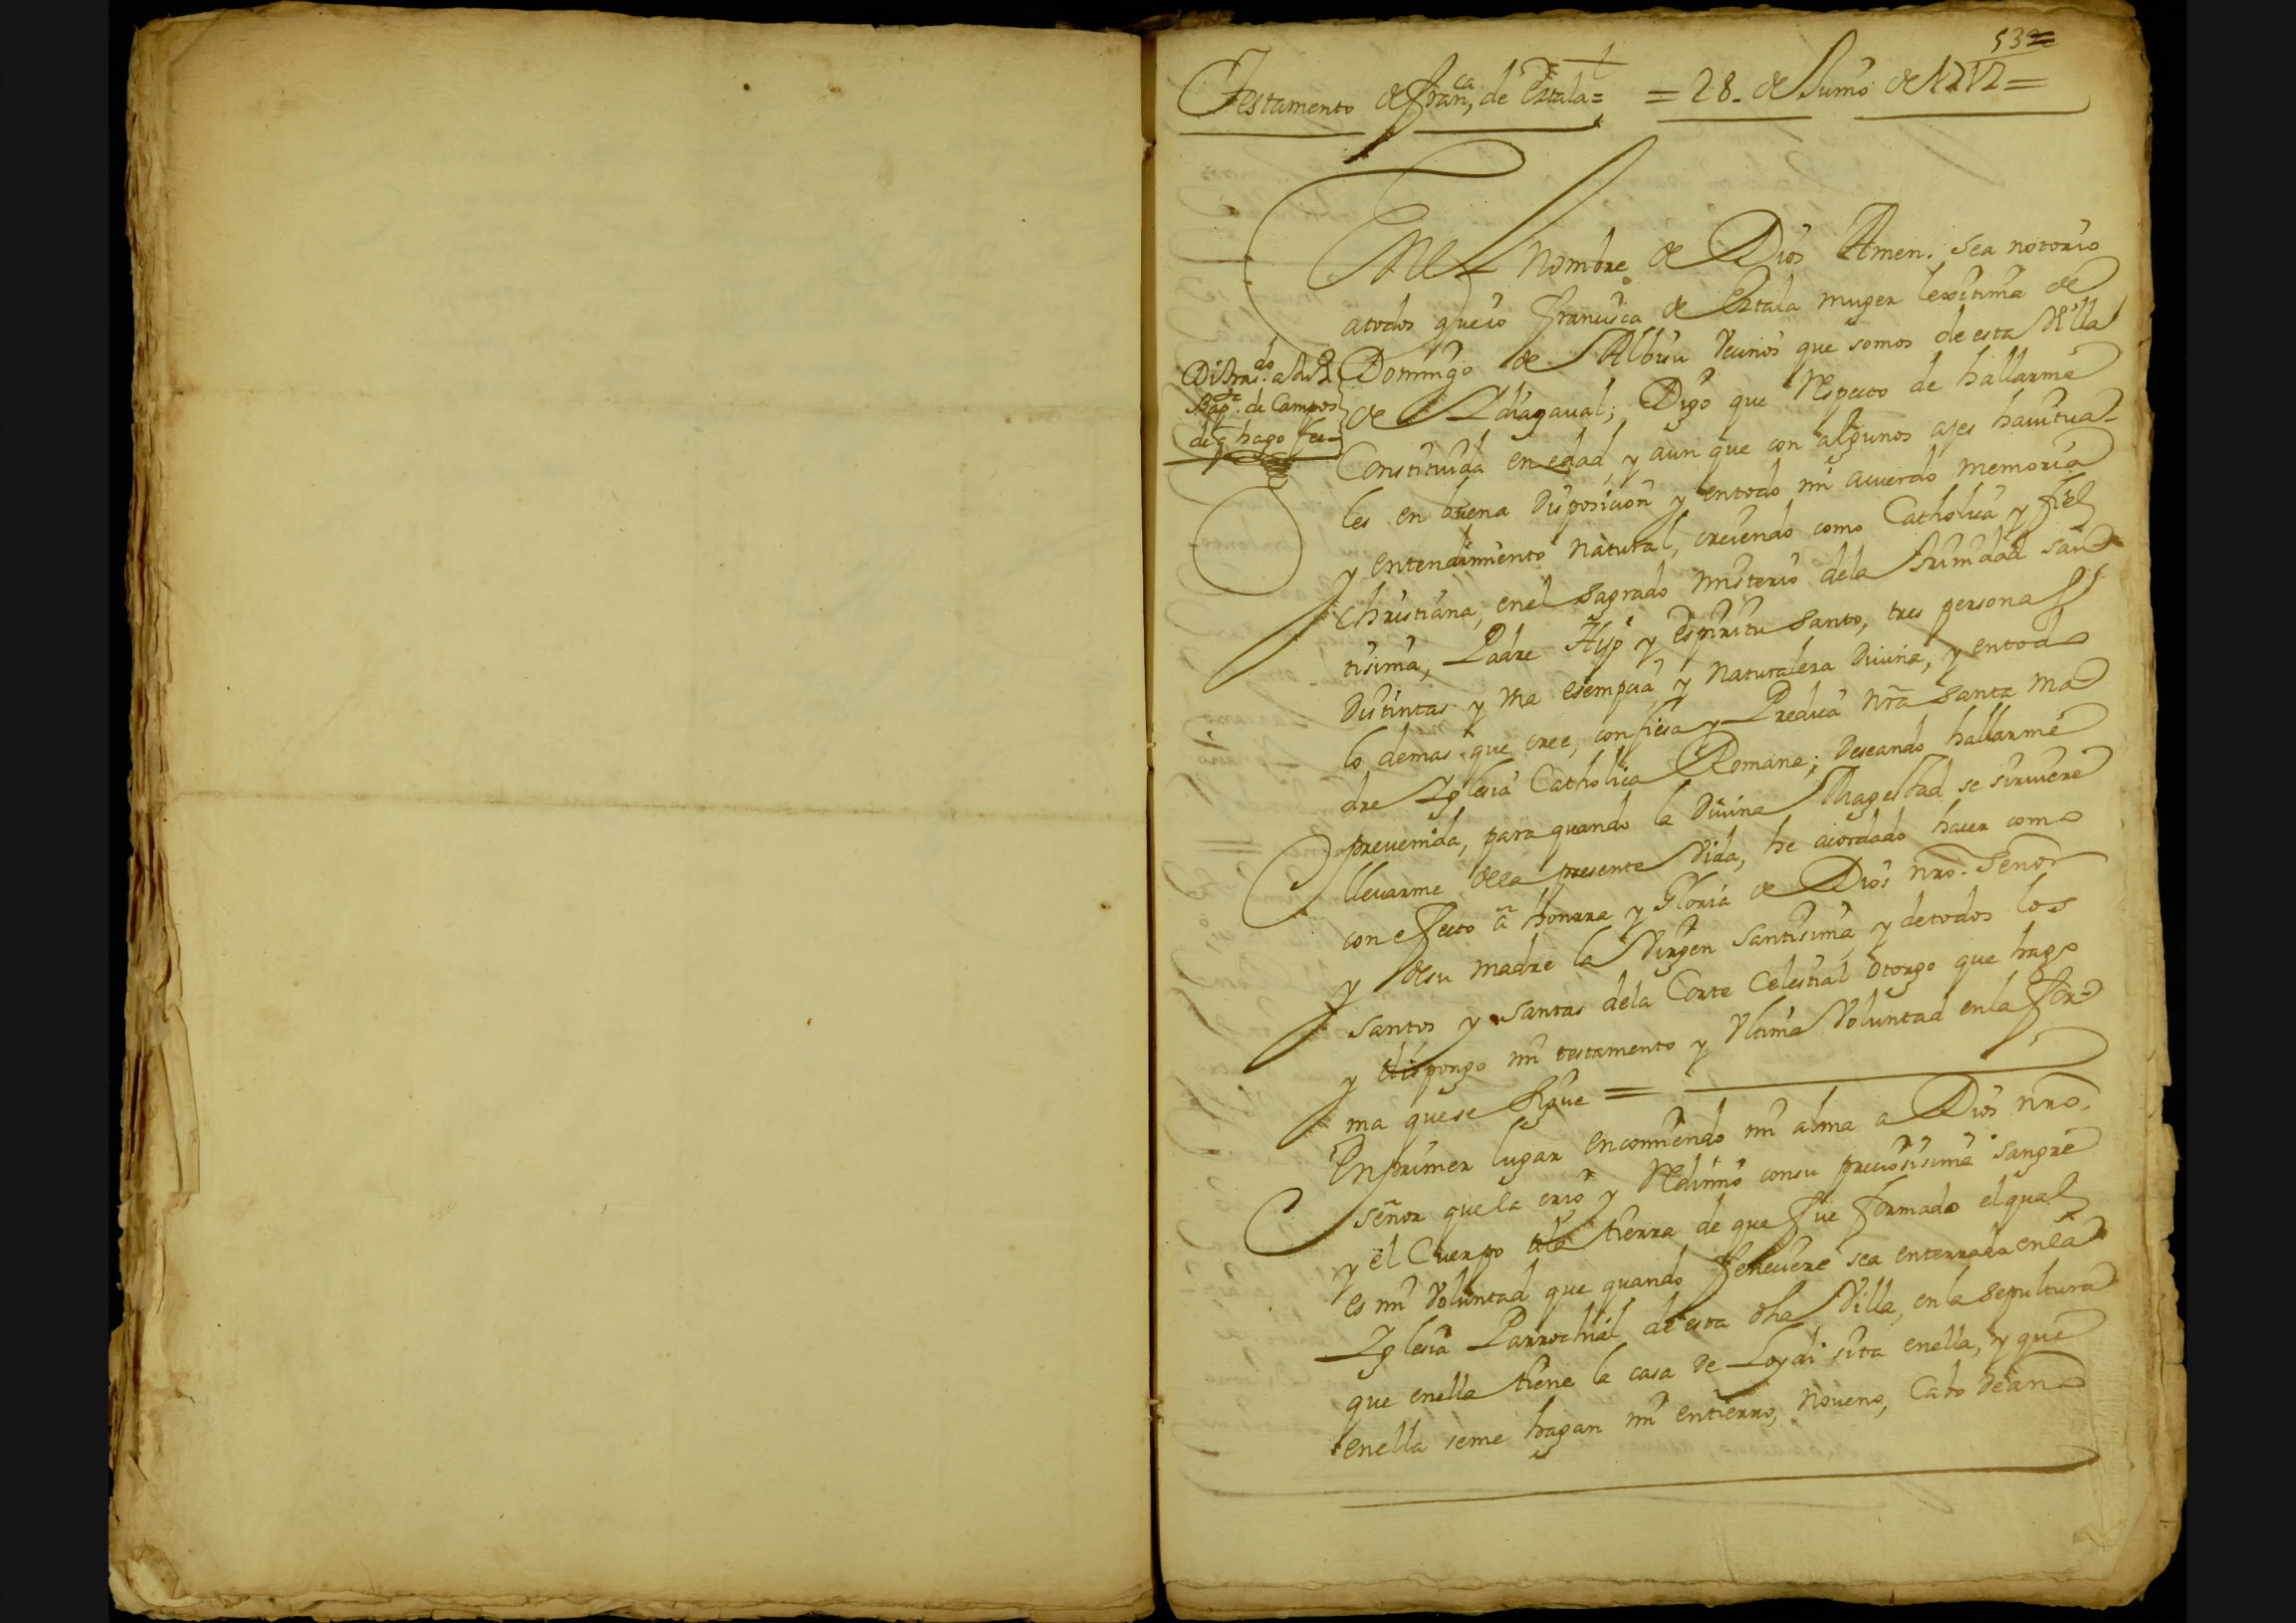 532
Testamento de fran.ca de Eztala = = 28 - de Junio de 1712 =
En el Nombre de Dios Amen. Sea notorio
atodos que io francisca de Eztala muger lexitima de
Domingo de Albisu Vecinos que somos de esta Villa
de Ydiazaual; Digo que Respecto de hallarme
Constituida en edad, y aun que con algunos ajes hauitua-
les en buena Disposicion y entodo mi acuerdo memoria
y entendimiento natural, creiendo como Catholica y fiel
christiana, enel Sagrado misterio dela Trinidad san-
tisima, Padre Hijo y espiritu santo, tres personas
Distintas y Vna esempcia y Naturaleza Diuina, y entodo
lo demas que cree, confiesa y Predica nra santa ma
dre Yglesia Catholica Romana; Deseando hallarme
preuenida, para quando la Diuina Magestad se siruiere
lleuarme dela presente Vida, he acordado hacer como
con efecto â honrra y Gloria de Dios nro. Señor
y desu madre la Virgen santisima y detodos los
santos y santas dela Corte Celestial Otorgo que hago
y dispongo mi testamento y Vltima Voluntad enla for-
ma quese sigue =
En primer lugar encomiendo mi alma a Dios nro.
señor quela crio y Redimio consu preciosisima sangre
y el Cuerpo ala tierra de que fue formado elqual
es mi Voluntad que quando fenesciere sea enterrada enla
Yglesia Parrochial de esta dha Villa, enla sepultura
que enella tiene la casa de Loydi sita enella, y que
enella seme hagan mi entierro, noueno, Cabo de año
Bap.ta de Campos
de q hago fee